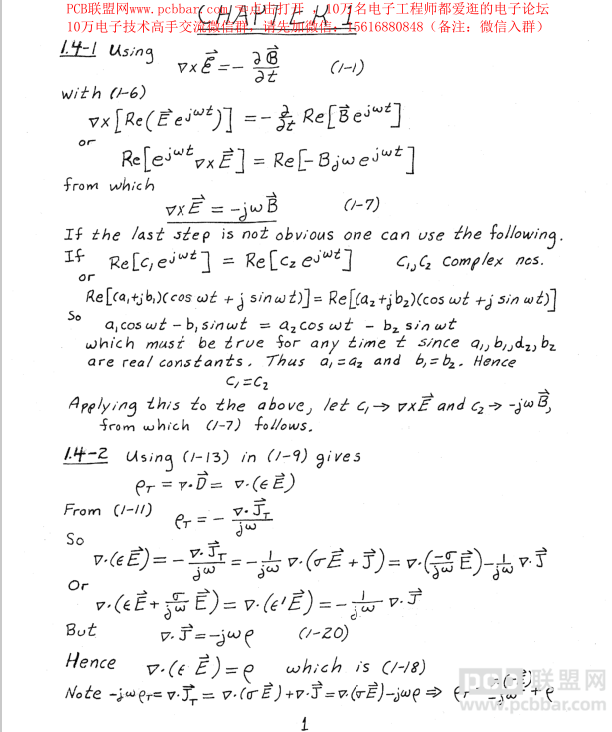 PCB联盟网www.pcbbar.com 点击打开 10万名电子工程师都爱逛的电子论坛
10万电子技术高手交流微信群，请先加微信：15616880848（备注：微信入群）
CHAPTER 1
1.4-1 Using ∇×ℰ⃗ = -∂ℬ⃗/∂t (1-1)
with (1-6)
∇×[Re(E⃗e^{jωt})] = -∂/∂t Re[B⃗e^{jωt}]
or
Re[e^{jωt}∇×E⃗] = Re[-Bjωe^{jωt}]
from which
∇×E⃗ = -jωB⃗ (1-7)
If the last step is not obvious one can use the following.
If Re[c₁e^{jωt}] = Re[c₂e^{jωt}] C₁,C₂ complex nos.
or
Re[(a₁+jb₁)(cos ωt + j sin ωt)] = Re[(a₂+jb₂)(cos ωt + j sin ωt)]
So
a₁cos ωt - b₁sin ωt = a₂cos ωt - b₂ sin ωt
which must be true for any time t since a₁,b₁,a₂,b₂
are real constants. Thus a₁=a₂ and b₁=b₂. Hence
C₁=C₂
Applying this to the above, let c₁→∇×E⃗ and c₂→-jωB⃗,
from which (1-7) follows.
1.4-2 Using (1-13) in (1-9) gives
ρ_T = ∇·D⃗ = ∇·(εE⃗)
From (1-11) ρ_T = -∇·J⃗_T/jω
So
∇·(εE⃗) = -∇·J⃗_T/jω = -1/jω ∇·(σE⃗+J⃗) = ∇·(-σ/jω E⃗) - 1/jω ∇·J⃗
Or
∇·(εE⃗ + σ/jω E⃗) = ∇·(ε'E⃗) = -1/jω ∇·J⃗
But ∇·J⃗ = -jωρ (1-20)
Hence ∇·(ε'E⃗) = ρ which is (1-18)
Note -jωρ_T = ∇·J⃗_T = ∇·(σE⃗)+∇·J⃗ = ∇·(σE⃗)-jωρ ⇒ ρ_T = /-jω + ρ
PCB联盟网
www.pcbbar.com
1